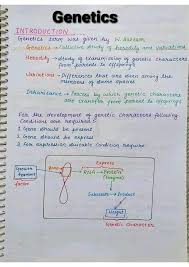 Genetics
INTRODUCTION
Genetics term was given by W. Bateson
Genetics → Collective study of heredity and variations
Heredity → Study of transmission of genetic characters
from parents to offsprings
Variations → Differences that are even among the
members of same species
Inheritance → Process by which genetic characters
are transfer from parent to offsprings
For the development of genetic characters following
conditions are required
1 Gene should be present
2 Gene should be express
3 For expression suitable condition require
Express
RNA → Protein
(enzyme)
Growth
factor
Substrate → Product
Genetic character